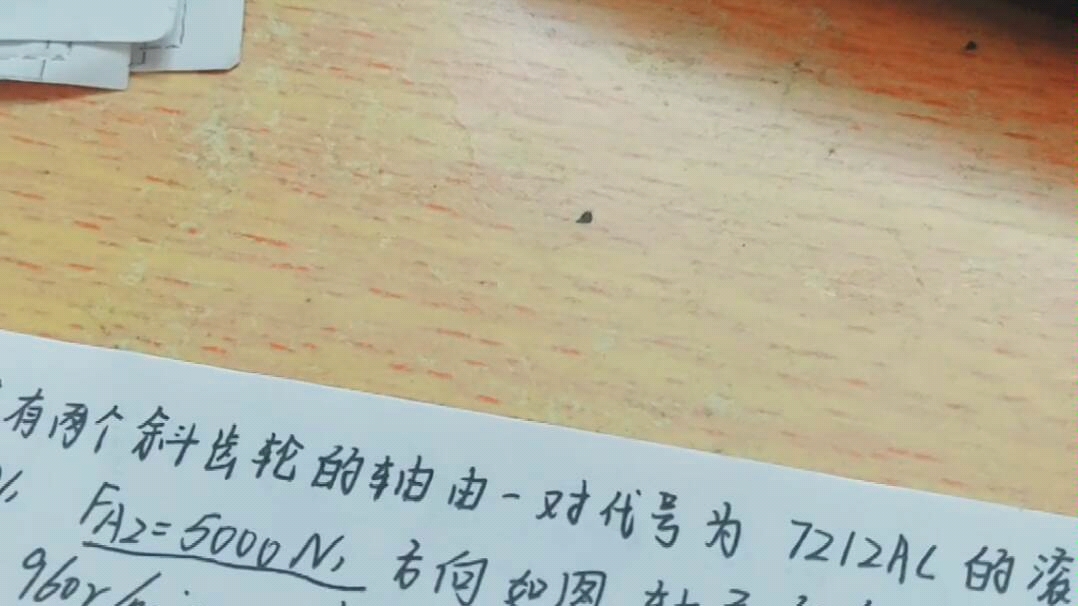 有两个斜齿轮的轴由一对代号为 7212AC 的滚
FA2=5000N, 方向如图
960r/min